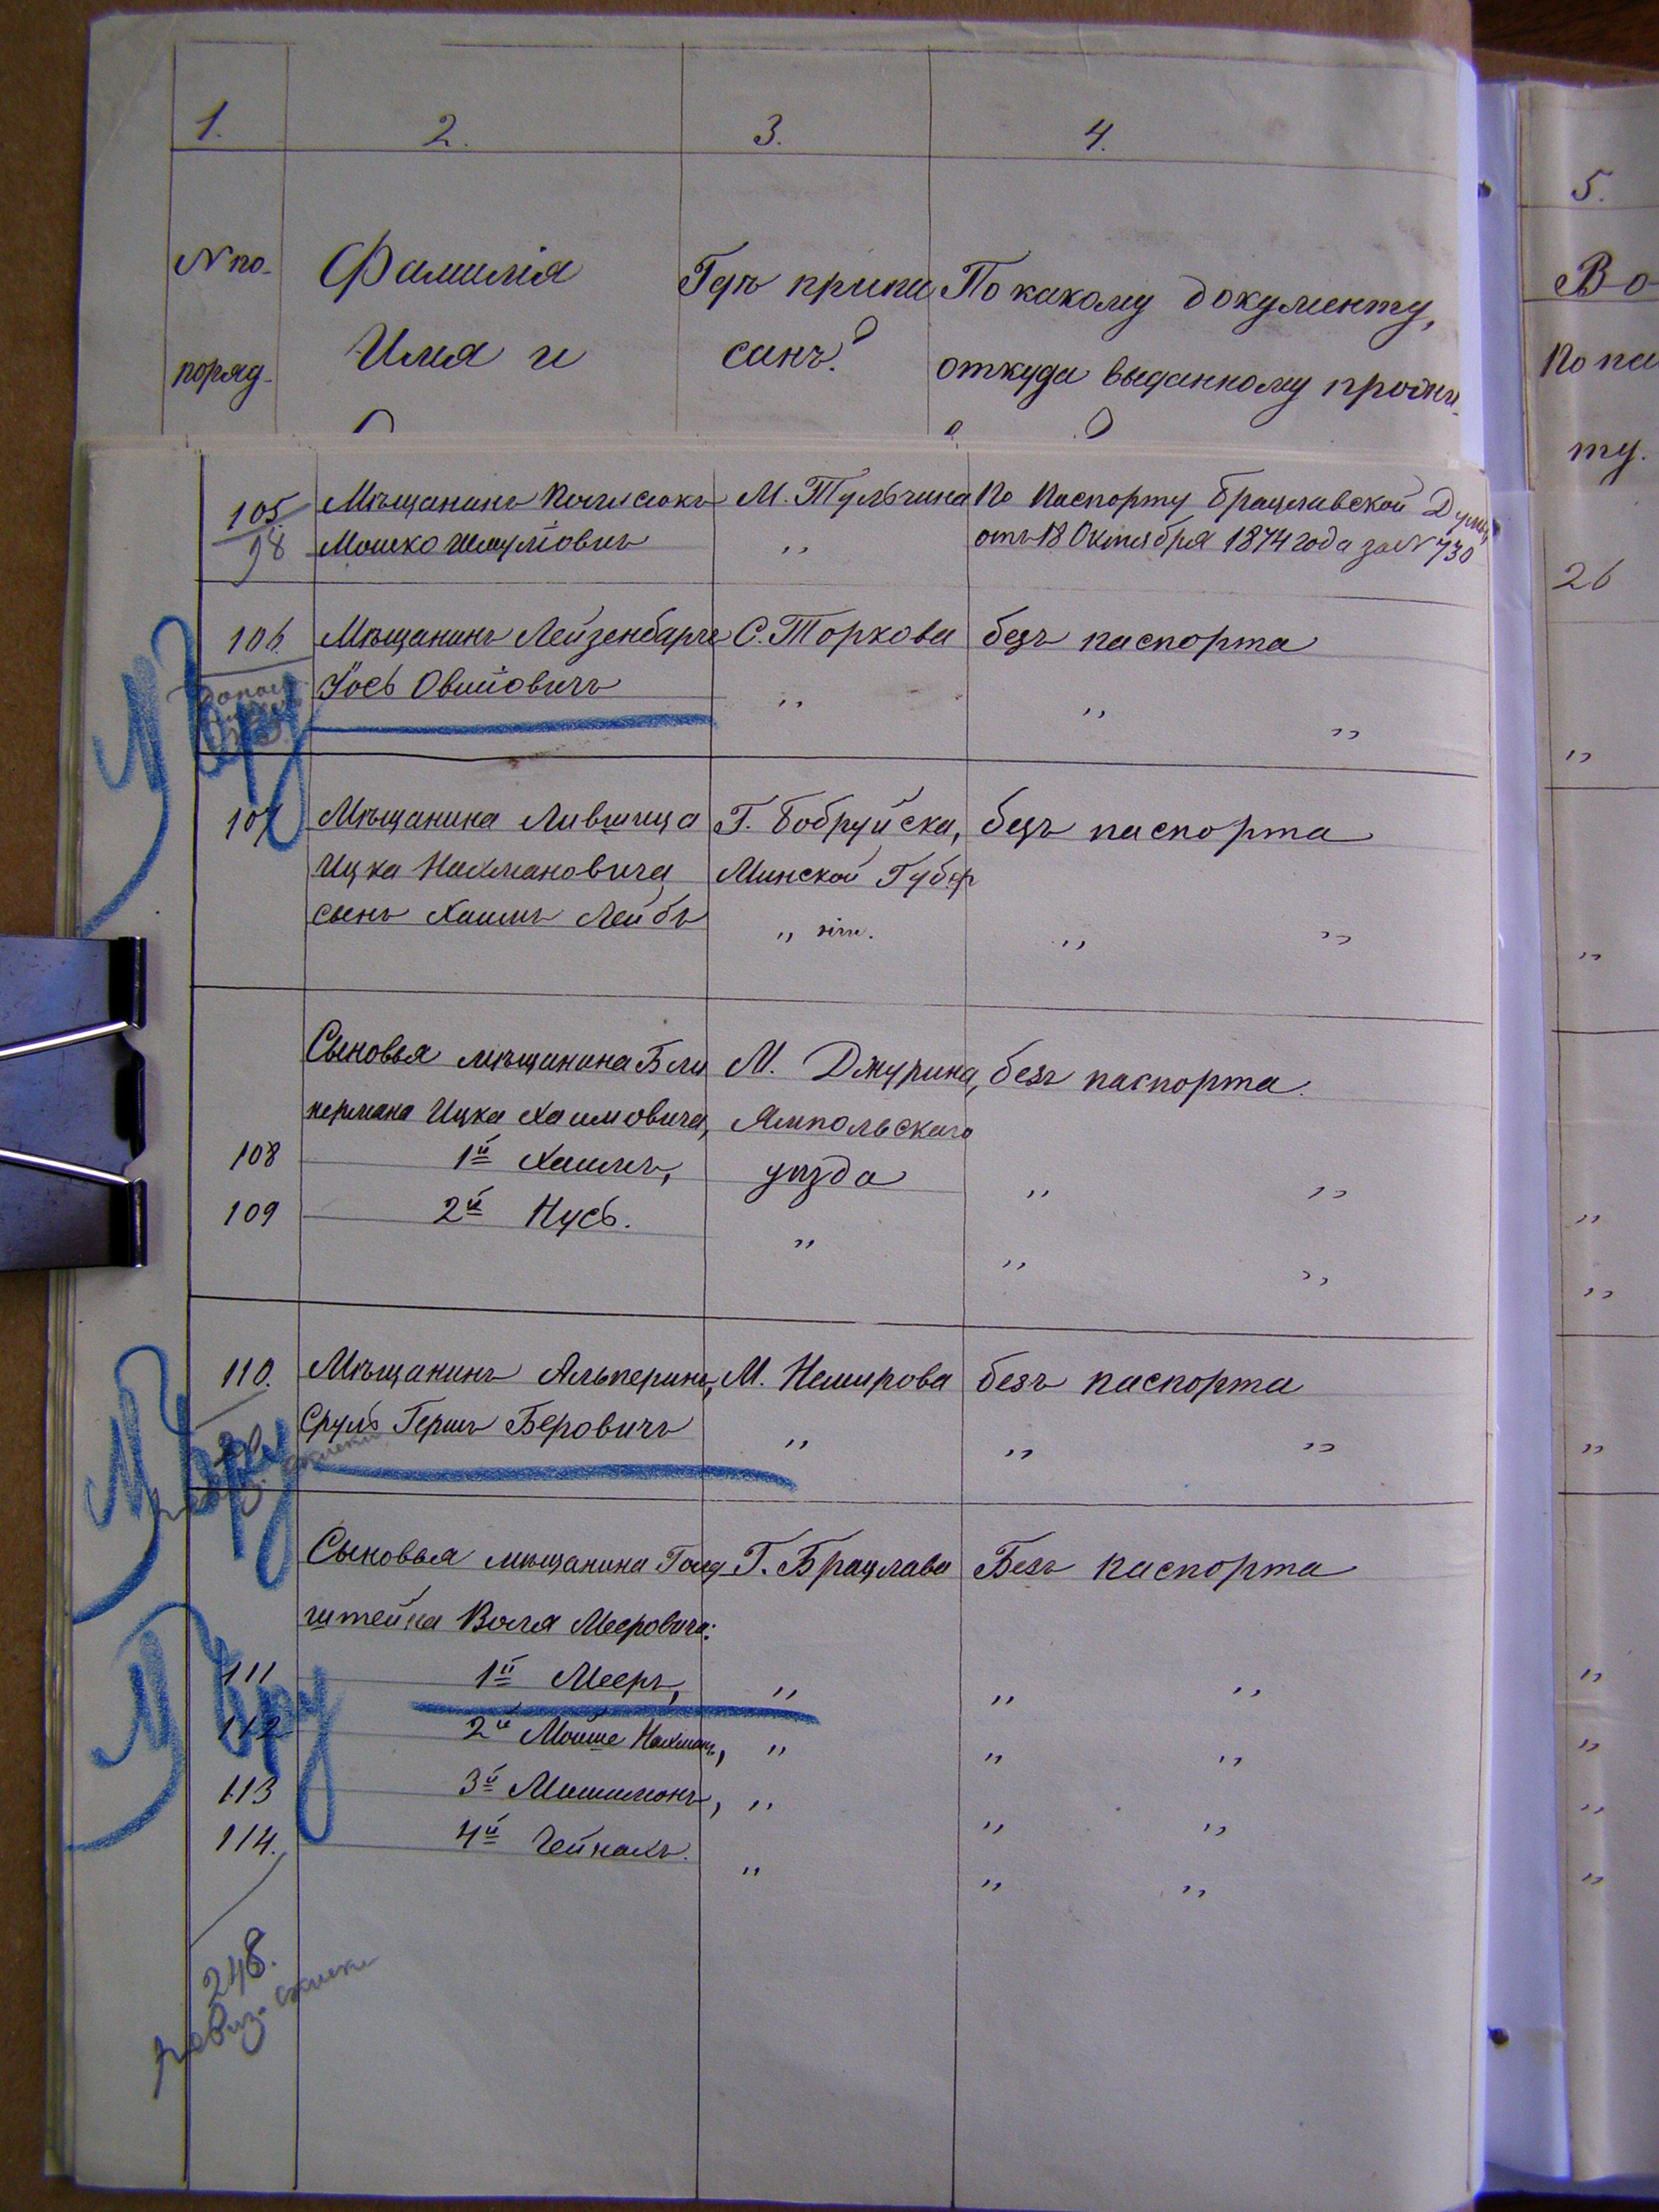 1. 2. 3. 4.
5.
№ по-
поряд-
Фамилія
Имя и
Гдѣ припи
санъ?
По какому документу,
откуда выданному прожи-
Во
по па
ту.
105.
98
Мѣщанинъ
Мошко Шмулiовичъ
М. Тульчина
„
По паспорту Брацлавской Думы
отъ 18 Октября 1874 года за № 730
26
106.
Мѣщанинъ Лейзенбергъ
Іось Овшiовичъ
С. Торкова
„
безъ паспорта
„ „
„
107
Мѣщанина Лившица
Ицка Нахмановича
сынъ Хаимъ Лейбъ
Г. Бобруйска,
Минской Губер
„ нiи.
безъ паспорта
„ „
„
Сыновья мѣщанина Бли
нермана Ицка Хаимовича,
108 1й Хаимъ,
109 2й Нусь.
М. Джурина,
Ямпольскаго
уѣзда
„
безъ паспорта.
„ „
„ „
„
„
110.
Мѣщанинъ Альперинъ,
Сруль Гершъ Беровичъ
М. Немирова
„
безъ паспорта
„ „
„
Сыновья мѣщанина Голд
штейна Воля Мееровича:
Г. Брацлава
Безъ паспорта
111 1й Мееръ, „ „ „ „
112 2й Мойше Нахманъ, „ „ „ „
113 3й „ „ „ „
114. 4й „ „ „ „
248.
ревиз. сказки